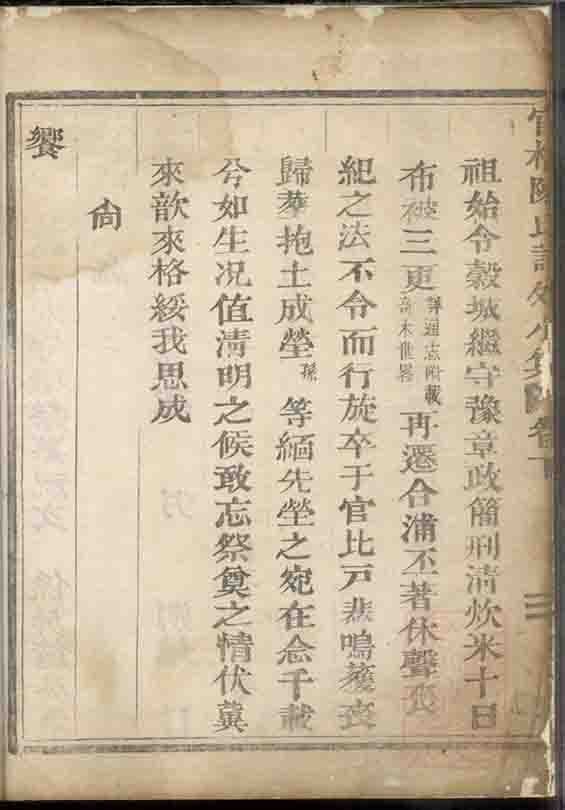 祖始令穀城繼守豫章政簡刑清炊米十日
布被三更詳通志附載高木世畧再遷合浦丕著休聲喪
紀之法不令而行旋卒于官比戸悲鳴護喪
歸葬抱土成塋孫等緬先塋之宛在念千載
兮如生况值清明之候敢忘祭奠之情伏冀
來歆來格綏我思成
尙
饗